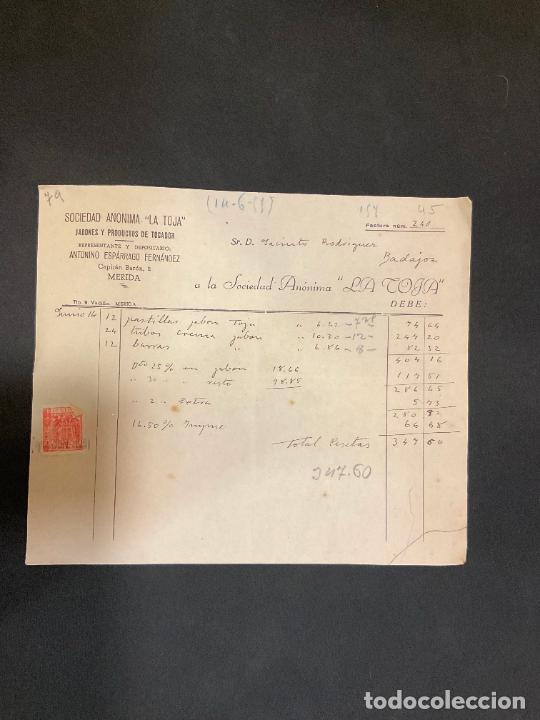 79
(14-6-51)
154 45
SOCIEDAD ANONIMA "LA TOJA"
JABONES Y PRODUCTOS DE TOCADOR
REPRESENTANTE Y DEPOSITARIO,
ANTONINO ESPÁRRAGO FERNÁNDEZ
Capitán Barón, 5
MERIDA
Factura núm. 240
Sr. D. Jacinto Rodriguez
Badajoz
a la Sociedad Anónima "LA TOJA"
DEBE:
Tip. MERIDA
Junio 14 12 pastillas jabon Toja " 6.22 74 64
24 tubos crema jabon " 10.30 -12- 247 20
12 barras " " 6.86 -8- 82 32
404 16
Dto 25% en jabon 18.66
" 30 " " resto 98.85 117 51
286 65
" 2 " Extra 5 73
280 92
16.50% Impue 66 68
Total Pesetas 347 60
347.60
todocoleccion